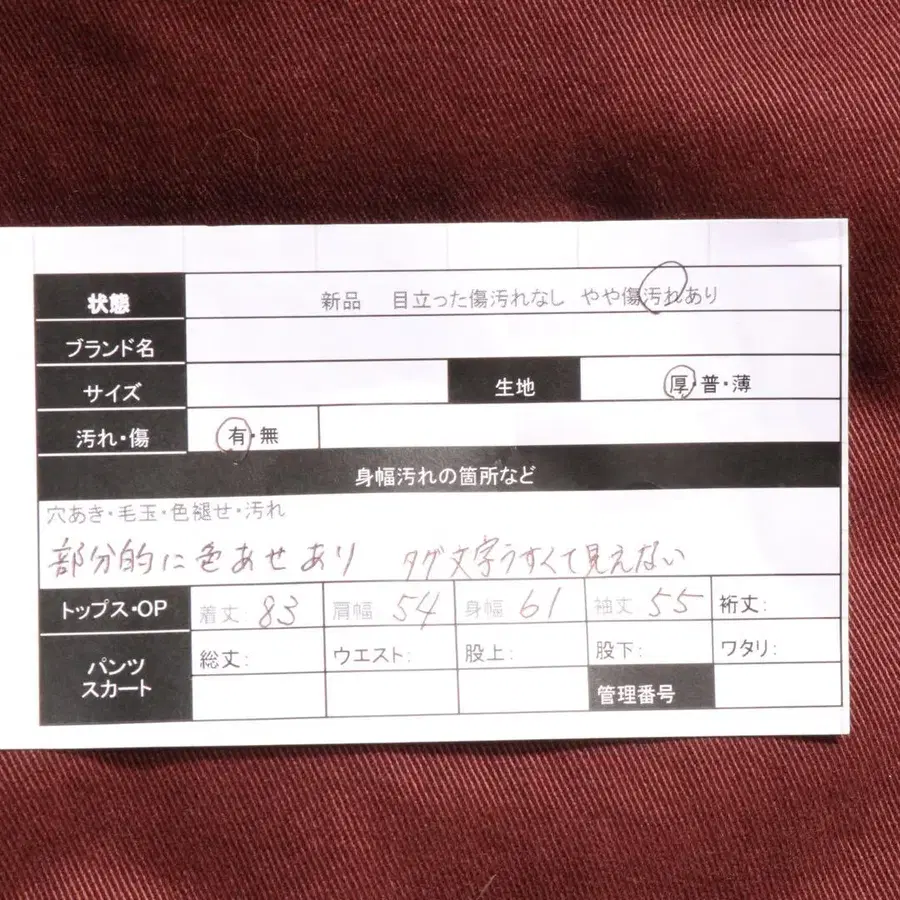 状態 新品 目立った傷汚れなし やや傷汚れあり
ブランド名
サイズ 生地 厚・普・薄
汚れ・傷 有・無
身幅汚れの箇所など
穴あき・毛玉・色褪せ・汚れ
部分的に色あせあり タグ文字うすくて見えない
トップス・OP 着丈: 83 肩幅: 54 身幅: 61 袖丈: 55 裄丈:
パンツ スカート 総丈: ウエスト: 股上: 股下: ワタリ:
管理番号